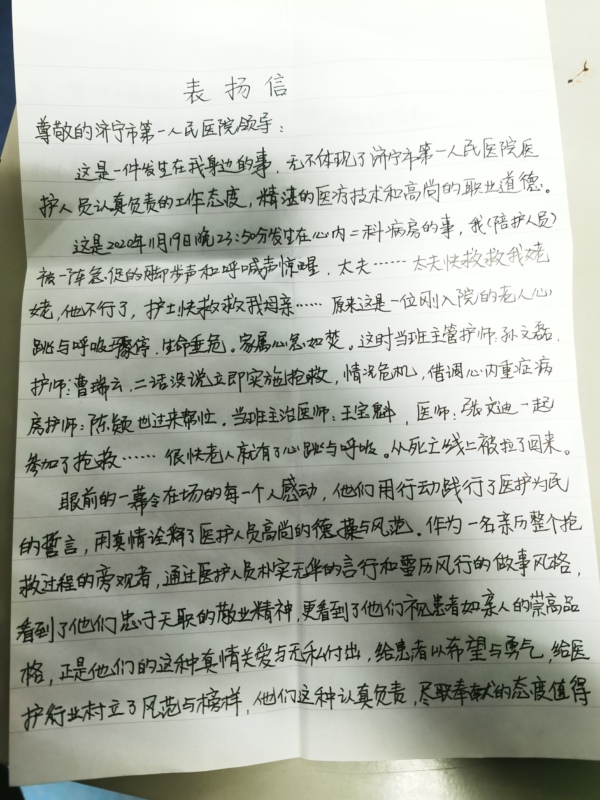 表扬信
尊敬的济宁市第一人民医院领导：
这是一件发生在我身边的事，无不体现了济宁市第一人民医院医
护人员认真负责的工作态度，精湛的医疗技术和高尚的职业道德。
这是2020年11月19日晚23:50分发生在心内二科病房的事，我(陪护人员)
被一阵急促的脚步声和呼喊声惊醒，大夫……大夫快救救我姥
姥，他不行了，护士快救救我母亲……原来这是一位刚入院的老人心
跳与呼吸骤停，生命垂危。家属心急如焚。这时当班主管护师：孙文磊，
护师：曹瑞云，二话没说立即实施抢救，情况危机，借调心内重症病
房护师：陈颖也过来帮忙。当班主治医师：王宝魁，医师：张文迪一起
参加了抢救……很快老人就有了心跳与呼吸。从死亡线上被拉了回来。
眼前的一幕令在场的每一个人感动，他们用行动践行了医护为民
的誓言，用真情诠释了医护人员高尚的德操与风范。作为一名亲历整个抢
救过程的旁观者，通过医护人员朴实无华的言行和雷历风行的做事风格，
看到了他们忠于天职的敬业精神，更看到了他们视患者如亲人的崇高品
格，正是他们的这种真情关爱与无私付出，给患者以希望与勇气，给医
护行业树立了风范与榜样，他们这种认真负责，尽职奉献的态度值得